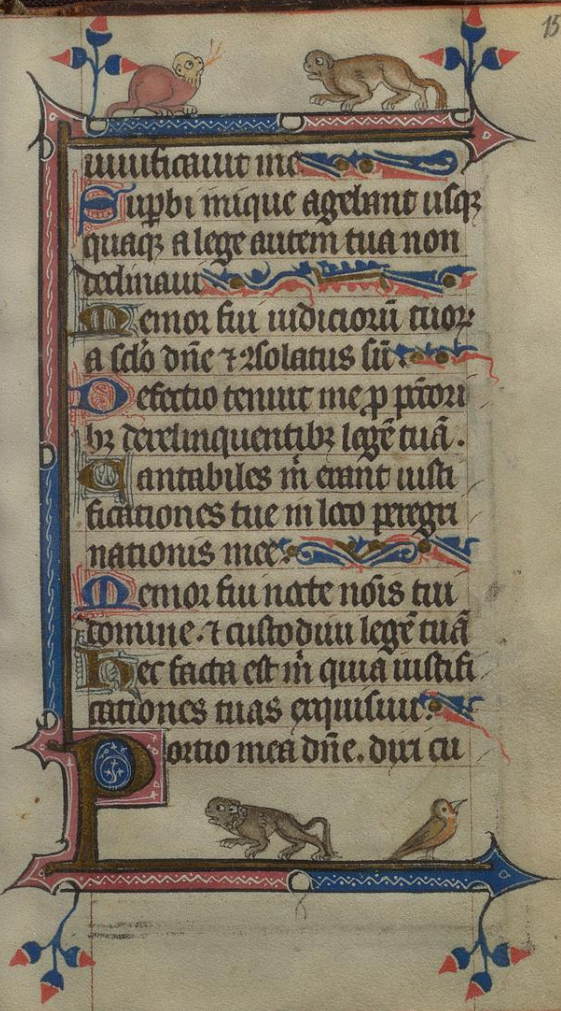 15
uiuificauit me
Supbi inique agebant usq3
quaq3 a lege autem tua non
declinaui
Memor fui iudicioru᷑ tuoꝝ
a sclo dn̄e ⁊ ꝯsolatus sū.
Defectio tenuit me p pctori
b3 derelinquentib3 legē tuā.
Cantabiles m̄ erant iusti
ficationes tue in loco peregri
nationis mee.
Memor fui nocte nois tui
domine. ⁊ custodiui legē tuā
Hec facta est m̄ quia iustifi
cationes tuas exquisiui.
Portio mea dn̄e. dixi cu